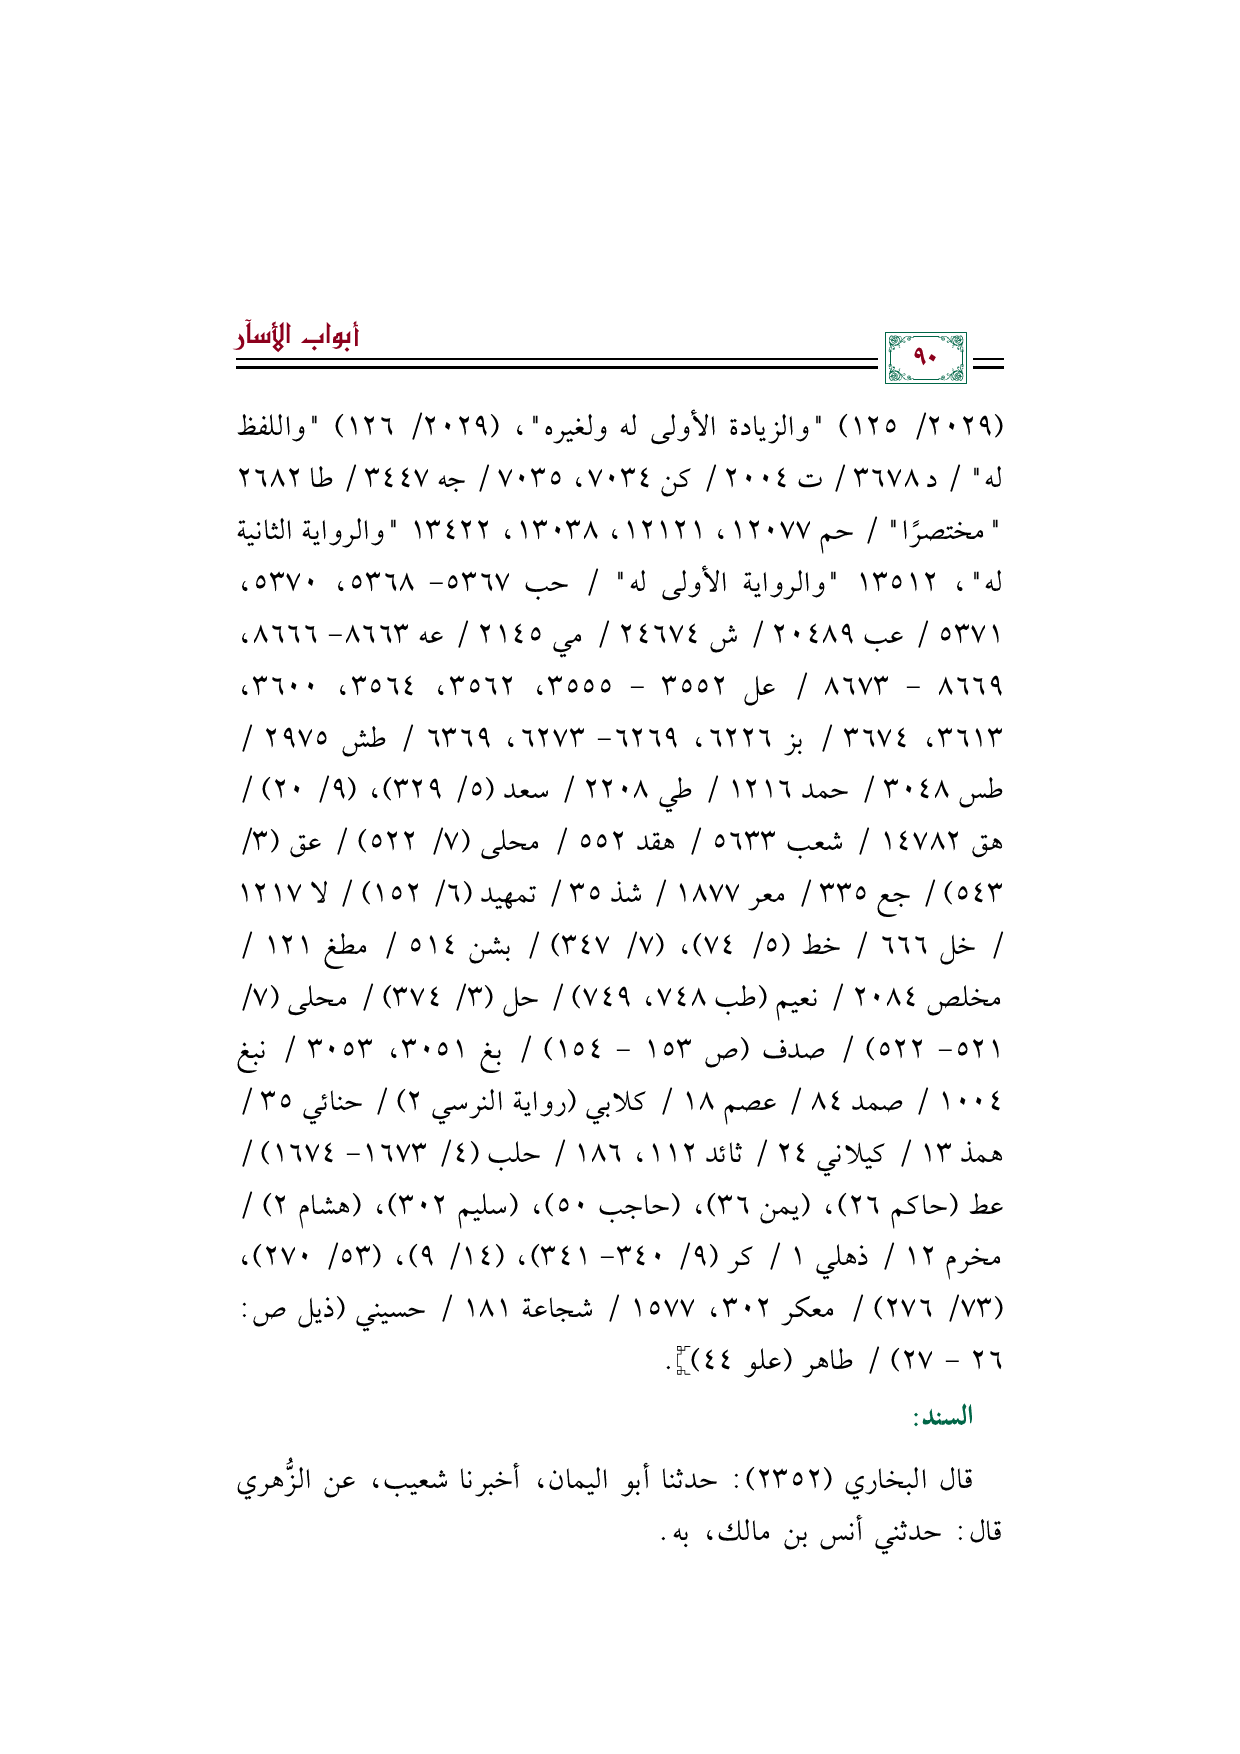 أبواب الأسآر
٩٠
(٢٠٢٩/ ١٢٥) "والزيادة الأولى له ولغيره"، (٢٠٢٩/ ١٢٦) "واللفظ
له" / د ٣٦٧٨ / ت ٢٠٠٤ / كن ٧٠٣٤، ٧٠٣٥ / جه ٣٤٤٧ / طا ٢٦٨٢
"مختصرًا" / حم ١٢٠٧٧، ١٢١٢١، ١٣٠٣٨، ١٣٤٢٢ "والرواية الثانية
له"، ١٣٥١٢ "والرواية الأولى له" / حب ٥٣٦٧– ٥٣٦٨، ٥٣٧٠،
٥٣٧١ / عب ٢٠٤٨٩ / ش ٢٤٦٧٤ / مي ٢١٤٥ / عه ٨٦٦٣– ٨٦٦٦،
٨٦٦٩ – ٨٦٧٣ / عل ٣٥٥٢ – ٣٥٥٥، ٣٥٦٢، ٣٥٦٤، ٣٦٠٠،
٣٦١٣، ٣٦٧٤ / بز ٦٢٢٦، ٦٢٦٩– ٦٢٧٣، ٦٣٦٩ / طش ٢٩٧٥ /
طس ٣٠٤٨ / حمد ١٢١٦ / طي ٢٢٠٨ / سعد (٥/ ٣٢٩)، (٩/ ٢٠) /
هق ١٤٧٨٢ / شعب ٥٦٣٣ / هقد ٥٥٢ / محلى (٧/ ٥٢٢) / عق (٣/
٥٤٣) / جع ٣٣٥ / معر ١٨٧٧ / شذ ٣٥ / تمهيد (٦/ ١٥٢) / لا ١٢١٧
/ خل ٦٦٦ / خط (٥/ ٧٤)، (٧/ ٣٤٧) / بشن ٥١٤ / مطغ ١٢١ /
مخلص ٢٠٨٤ / نعيم (طب ٧٤٨، ٧٤٩) / حل (٣/ ٣٧٤) / محلى (٧/
٥٢١– ٥٢٢) / صدف (ص ١٥٣ – ١٥٤) / بغ ٣٠٥١، ٣٠٥٣ / نبغ
١٠٠٤ / صمد ٨٤ / عصم ١٨ / كلابي (رواية النرسي ٢) / حنائي ٣٥ /
همذ ١٣ / كيلاني ٢٤ / ثائد ١١٢، ١٨٦ / حلب (٤/ ١٦٧٣– ١٦٧٤) /
عط (حاكم ٢٦)، (يمن ٣٦)، (حاجب ٥٠)، (سليم ٣٠٢)، (هشام ٢) /
مخرم ١٢ / ذهلي ١ / كر (٩/ ٣٤٠– ٣٤١)، (١٤/ ٩)، (٥٣/ ٢٧٠)،
(٧٣/ ٢٧٦) / معكر ٣٠٢، ١٥٧٧ / شجاعة ١٨١ / حسيني (ذيل ص:
٢٦ – ٢٧) / طاهر (علو ٤٤)].
السند:
قال البخاري (٢٣٥٢): حدثنا أبو اليمان، أخبرنا شعيب، عن الزُّهري
قال: حدثني أنس بن مالك، به.